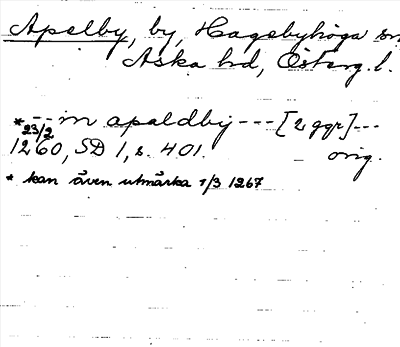 Apelby, by, Hagebyhöga sn,
Aska hd, Österg. l.
* -- in apaldby --- [2 ggr] ---
23/2 1260, SD 1, s. 401. orig.
* kan även utmärka 1/3 1267